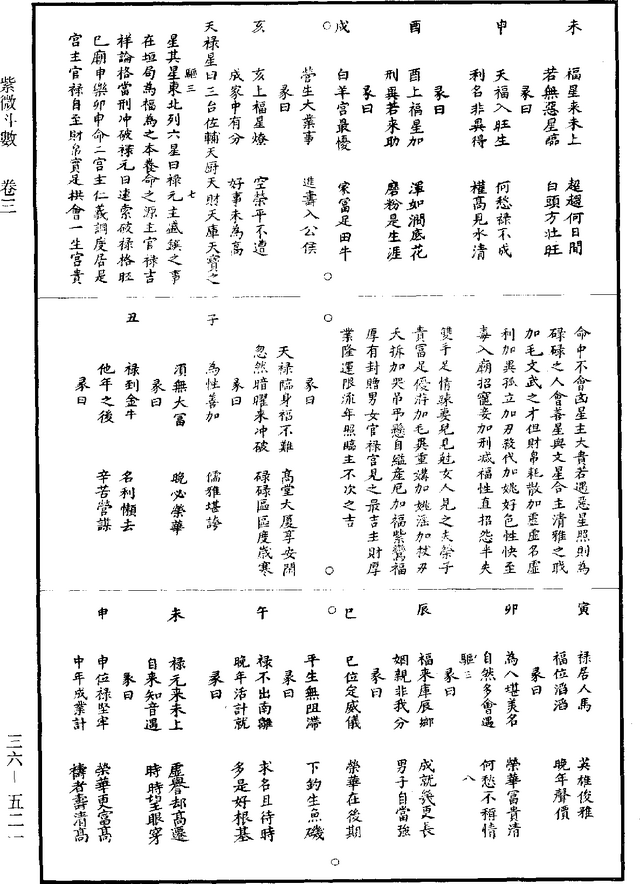 未　福星来未上　超越何日閒
若無惡星臨　白頭方壯旺
彖曰
申　天福入旺生　何愁祿不成
利名非異得　權高見水清
彖曰
酉　酉上福星加　渾如澗底花
刑異若來助　磨粉是生涯
彖曰
戌　白羊宮最優　家富足田牛
營生大業事　進壽入公侯
彖曰
亥　亥上福星燎　空榮平不遭
成家中有分　好事未為高
天祿星曰三台佐輔天厨天財天庫天寶之
驅三　七
星其星東北列六星曰祿元主盛簇之事
在垣局為福為之本養命之源主官祿吉
祥論格當刑冲破祿元日逺索破祿格旺
巳廟申樂卯申命二宮主仁義調度居是
宮主官祿自至財帛實足拱會一生宮貴
命中不會凶星主大貴若遇惡星照則為
碌碌之人會善星與文星合主清雅之戝
加毛文武之才但財帛耗散加虛虛名虛
利加異孤立加刃殺代加姚好色性快至
毒入廟招寵妾加刑减福性直招怨半夫
雙手足情疎要兒見尅女人見之夫榮子
貴富足優游加毛異重婚加姚滛加杖刃
夭折加哭吊予懸自縊產厄加福紫鸞福
厚有封贈男女官祿宮見之最吉主財厚
業隆運限流年照臨主不次之吉
彖曰
天祿臨身福不難　高堂大厦享安閒
忽然暗曜来冲破　碌碌區區度歲寒
彖曰
子　為性善加　儒雅堪誇
須無大富　晚必榮華
彖曰
丑　祿到金牛　名利懶去
他年之後　辛苦營謀
彖曰
寅　祿居人馬　英雄俊雅
福位滔滔　晚年聲價
彖曰
卯　為人堪美名　榮華冨貴清
自然多會遇　何愁不稱情
驅三　八
彖曰
辰　福来庫辰鄉　成就㡬更長
姻親非我分　男子自當強
彖曰
巳　巳位定威儀　榮華在後期
平生無阻滯　下釣生魚磯
彖曰
午　祿不出南離　求名且待時
晚年活計就　多是好根基
彖曰
未　祿元来未上　虛譽却高遷
自来知音遇　時時望眼穿
彖曰
申　申位祿堅牢　榮華更富高
中年成業計　禱者壽清高
紫微斗數　卷三
三六－五二一